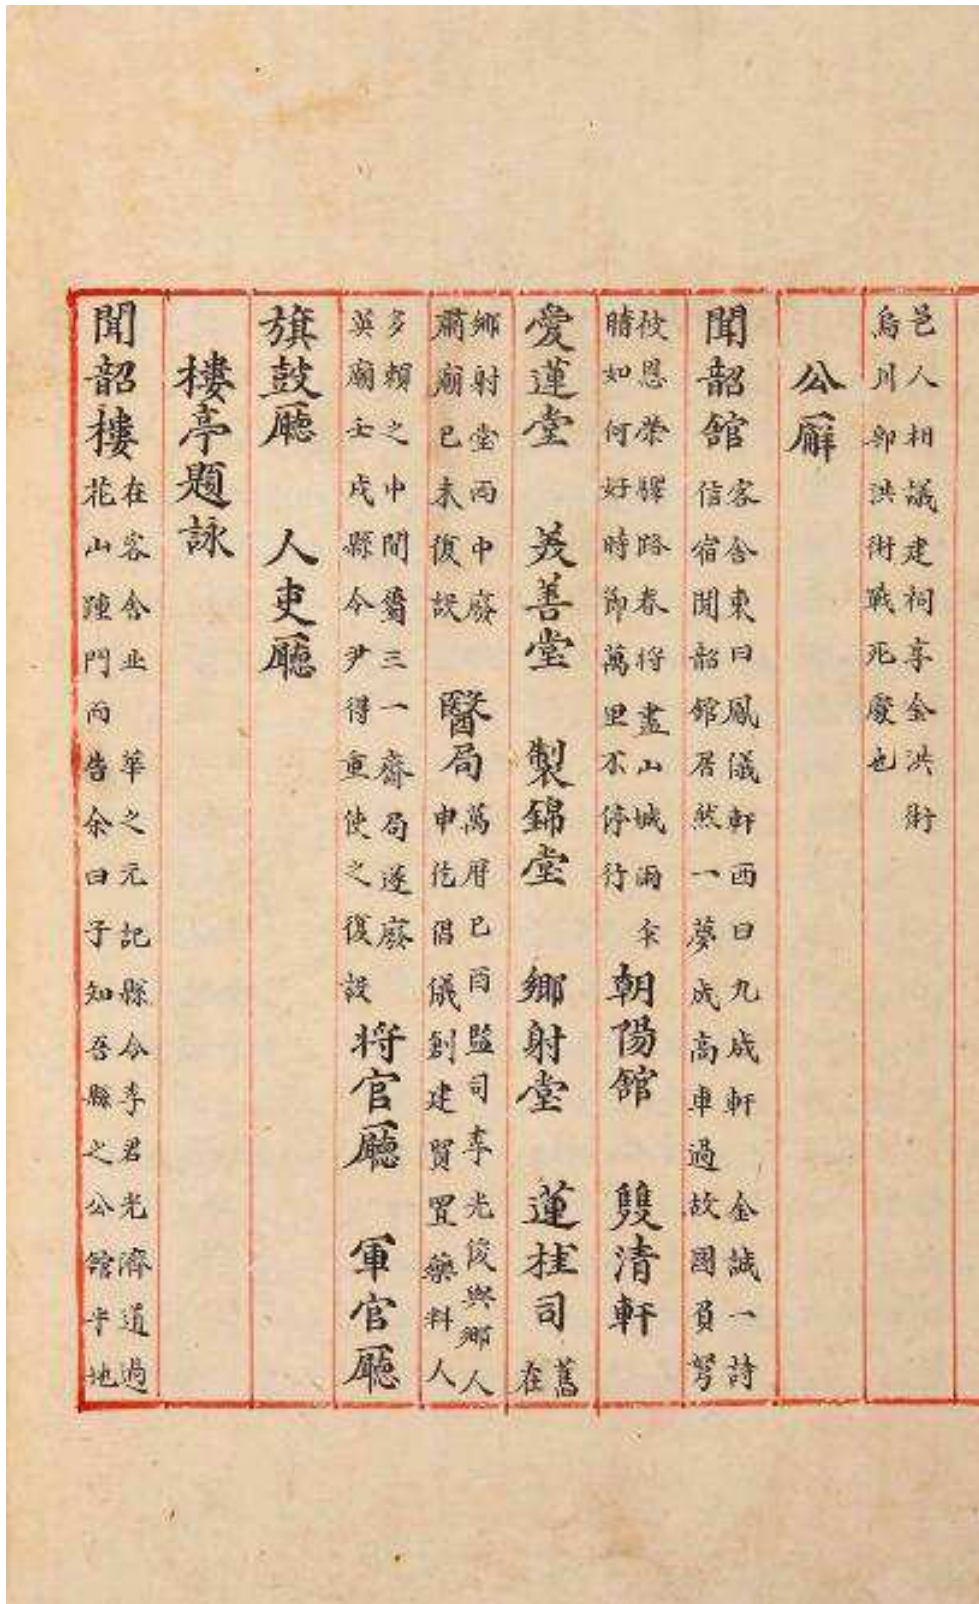 邑人相議建祠享金洪術
烏川郭洪術戰死廢也
公廨
聞韶舘
客舍東曰鳳儀軒西曰九成軒 金誠一詩
信宿聞韶舘居然一夢成高車過故國負弩
被恩榮驛路春將盡山城雨
睛如何好時節萬里不停行
朝陽舘 雙清軒
愛蓮堂 義善堂 製錦堂 鄉射堂 蓮桂司
舊
在
鄉射堂丙中廢
肅廟己未復設
醫局
萬曆己酉監司李光俊與鄉人
申仡倡儀創建貿置藥料人
多賴之中間屬三一齋局遂廢
英廟壬戌縣令尹得重使之復設
將官廳 軍官廳
旗鼓廳 人吏廳
樓亭題詠
聞韶樓
在客舍北 華之元記縣令李君光濟道過
花山踵門而告余曰子知吾縣之公舘乎地